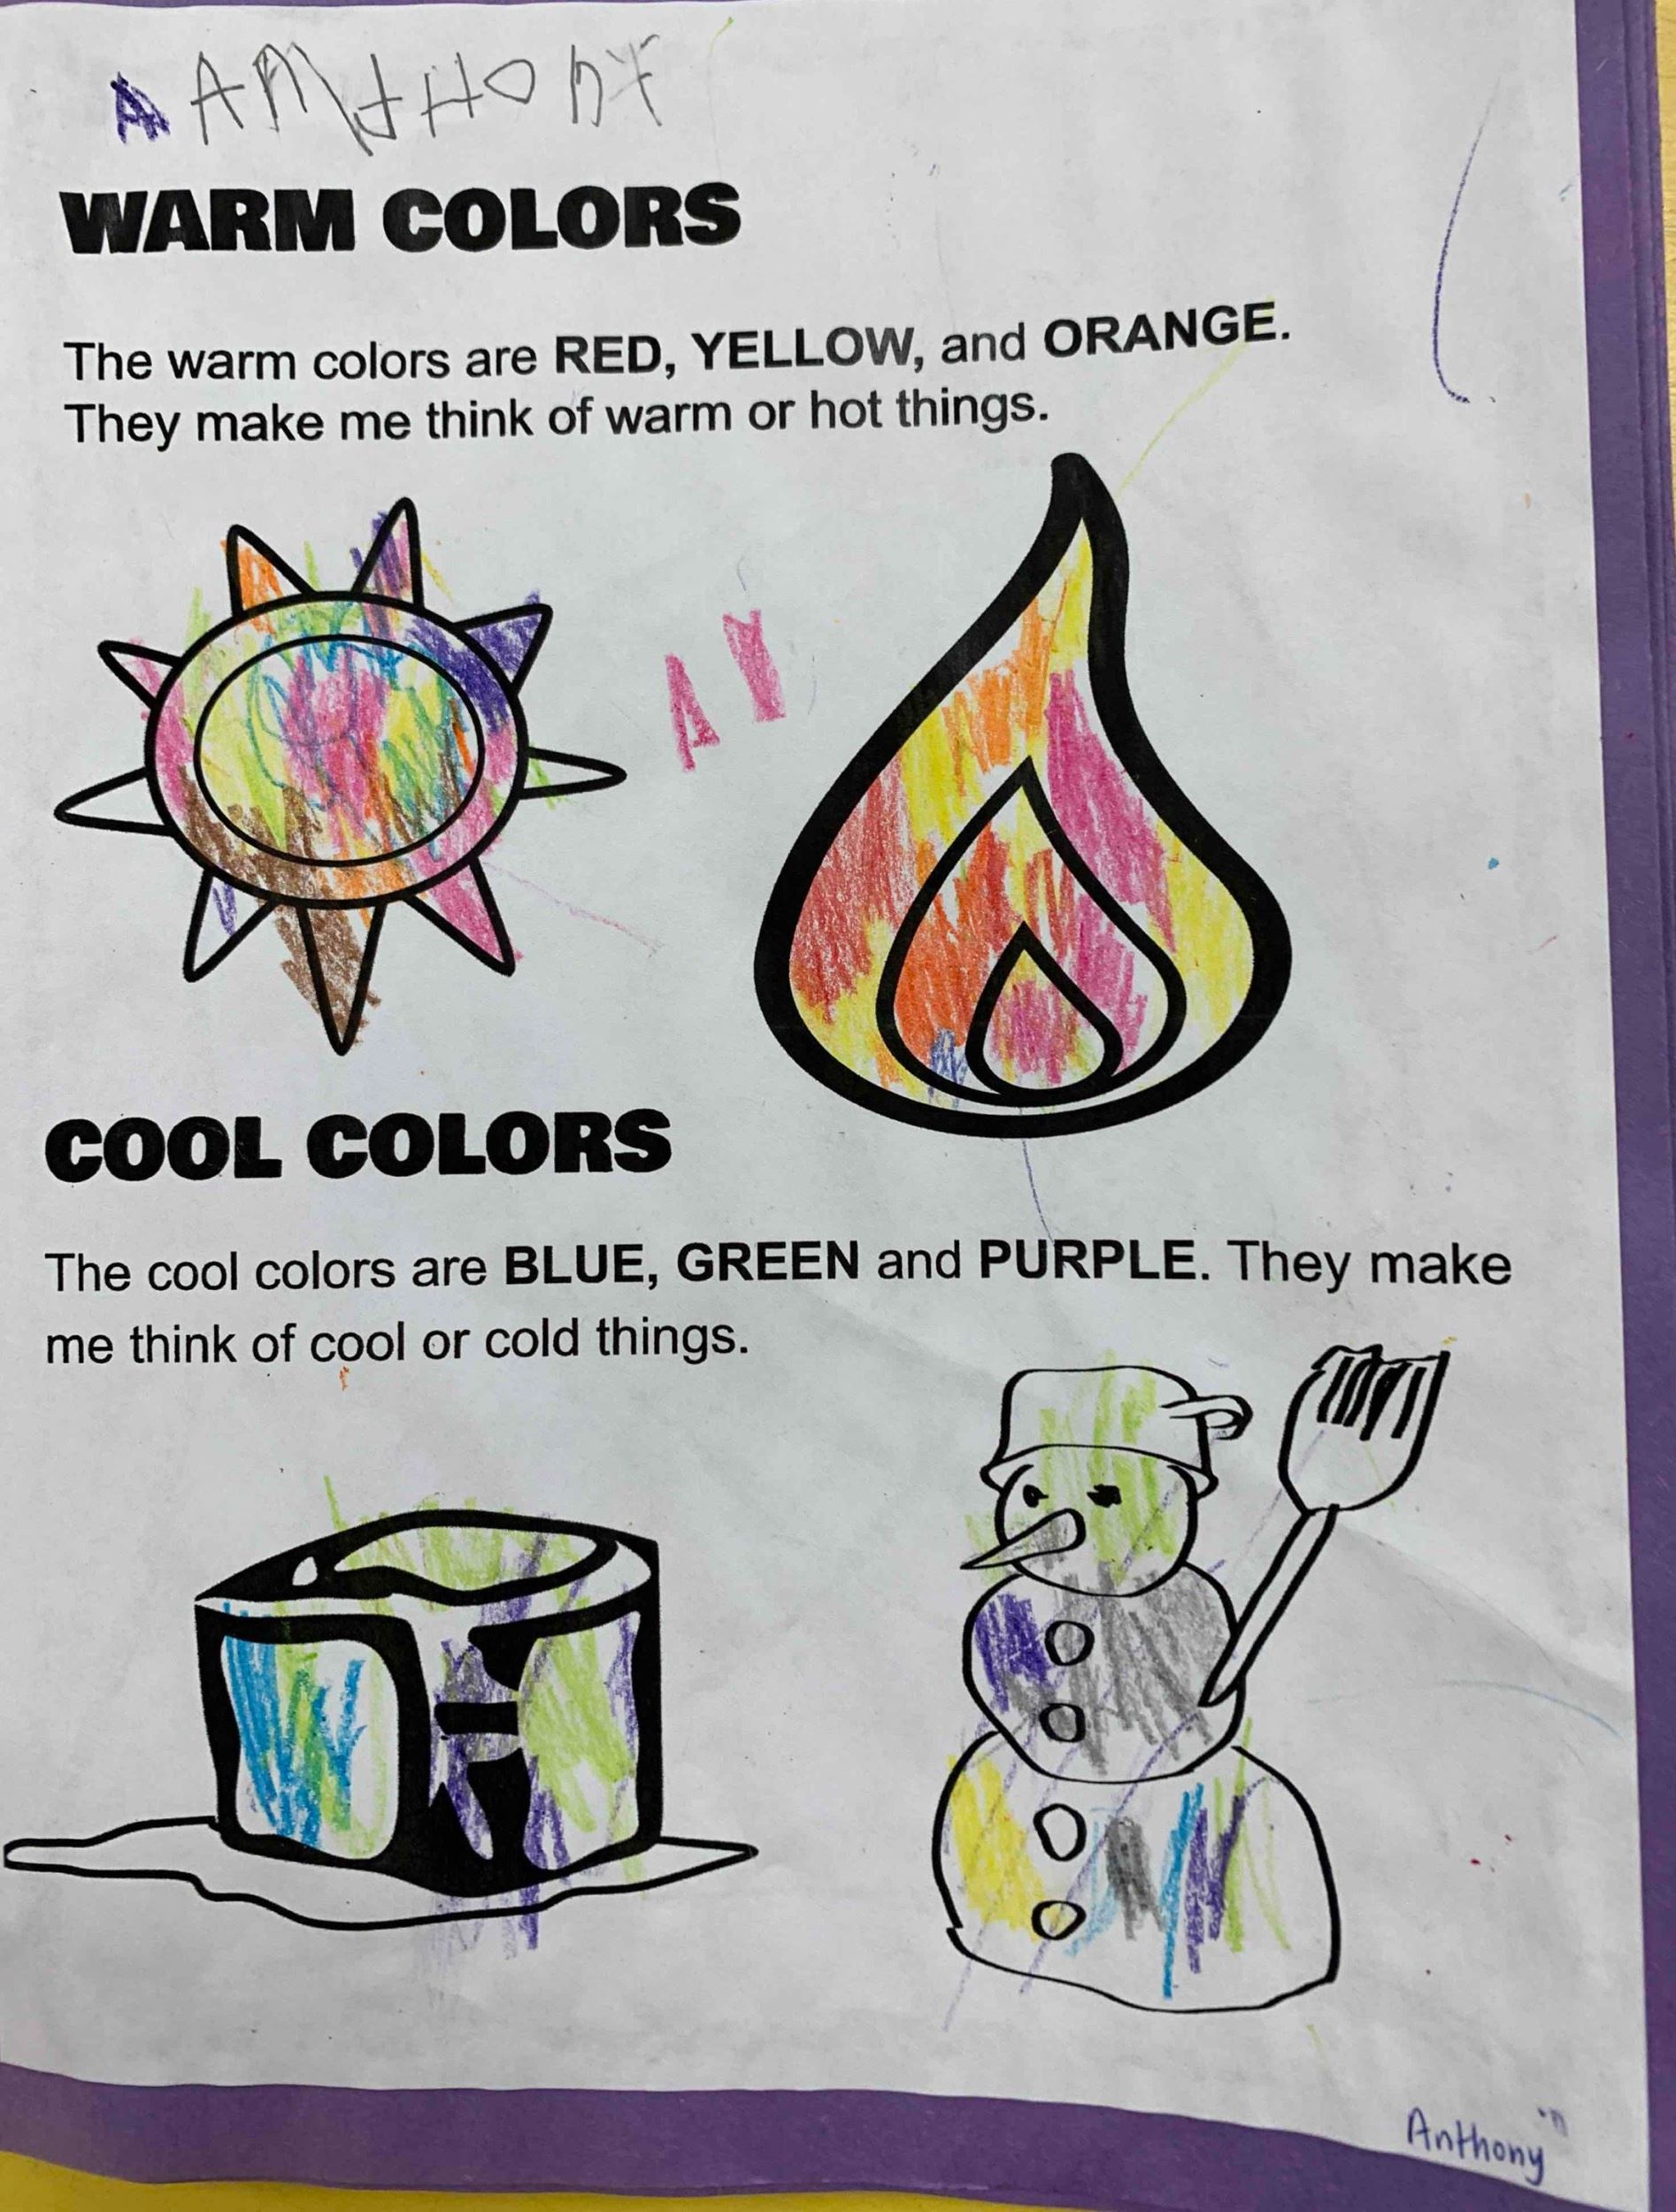 A ANTHONY
WARM COLORS
The warm colors are RED, YELLOW, and ORANGE.
They make me think of warm or hot things.
A
COOL COLORS
The cool colors are BLUE, GREEN and PURPLE. They make
me think of cool or cold things.
Anthony